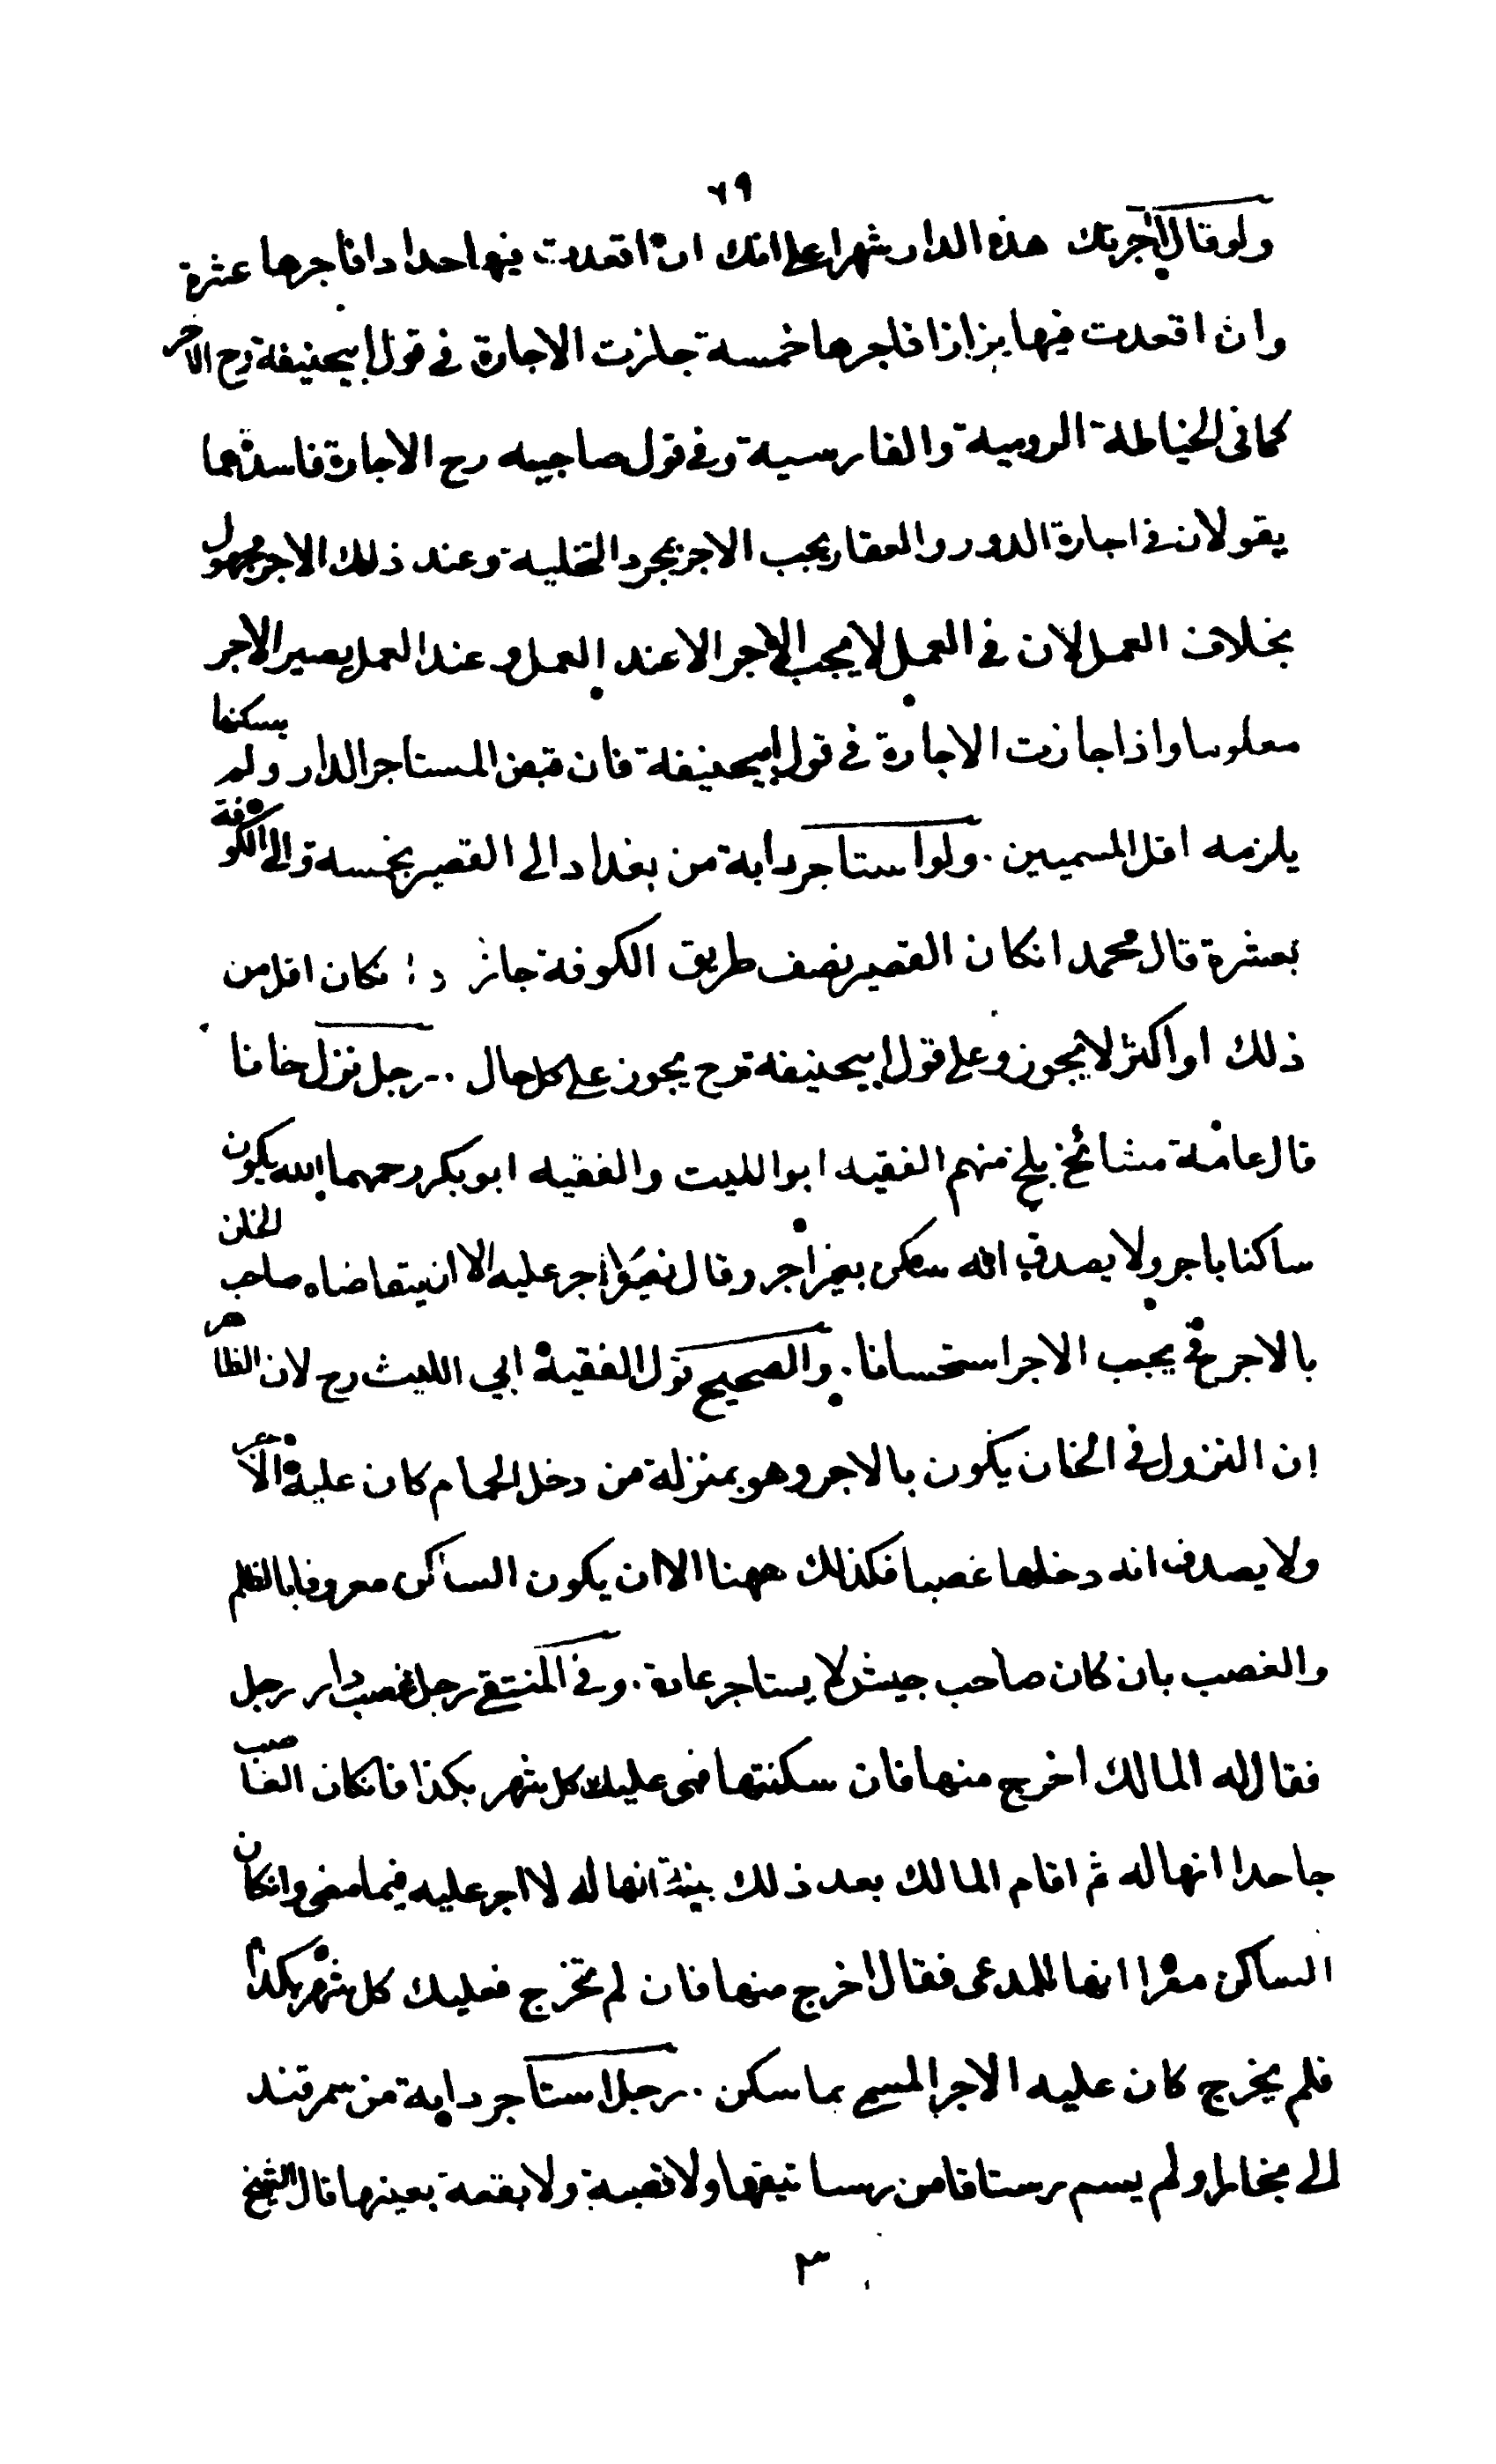 ٦٩
ولو قال اجرتك هذه الدار شهرا على انك ان اقعدت فيها حدادا فاجرها عشرة
وان اقعدت فيها بزازا فاجرها خمسة جازت الاجارة في قول ابيحنيفة رح الاخر
كما في الخياطة الرومية والفارسية وفي قول صاحبيه رح الاجارة فاسدة هما
يقولان في اجارة الدور والعقار يجب الاجر بمجرد التخلية وعند ذلك الاجر مجهول
بخلاف العمل لان في العمل لا يجب الاجر الا عند العمل وعند العمل يصير الاجر
معلوما واذا جازت الاجارة في قول ابيحنيفة فان قبض المستاجر الدار ولم يسكنها
يلزمه اقل المسميين . ولو استاجر دابة من بغداد الى القصير بخمسة والى الكوفة
بعشرة قال محمد انكان القصير نصف طريق الكوفة جاز وانكان اقل من
ذلك او اكثر لا يجوز وعلى قول ابيحنيفة رح يجوز على كل حال . رجل نزل خانا
قال عامة مشائخ بلخ منهم الفقيه ابو الليث والفقيه ابو بكر رحمهما الله يكون
ساكنا باجر ولا يصدق انه سكن بغير اجر وقال نصير لا اجر عليه الا ان يتقاضاه صاحب الخان
بالاجر فح يجب الاجر استحسانا . والصحيح قول الفقيه ابي الليث رح لان الظاهر
ان النزول في الخان يكون بالاجر وهو بمنزلة من دخل الحمام كان عليه الاجر
ولا يصدق انه دخلها غصبا فكذلك ههنا الا ان يكون الساكن معروفا بالظلم
والغصب بان كان صاحب جيش لا يستاجر عادة . وفي المنتقى رجل غصب دار رجل
فقال له المالك اخرج منها فان سكنتها فهي عليك كل شهر بكذا فانكان الغاصب
جاحدا انها له ثم اقام المالك بعد ذلك بينة انها له لا اجر عليه فيما مضى وانكان
الساكن مقرا انها للمدعى فقال اخرج منها فان لم تخرج فعليك كل شهر بكذا
فلم يخرج كان عليه الاجر المسمى بما سكن . رجل استاجر دابة من سمرقند
الى بخارا ولم يسم رستاقا من رساتيقها ولا قصبة ولا بقعة بعينها قال الشيخ
٣